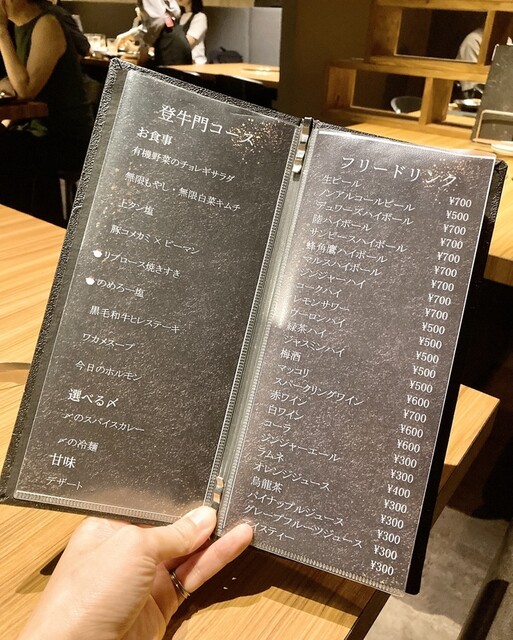 登牛門コース
お食事
有機野菜のチョレギサラダ
無限もやし・無限白菜キムチ
上タン塩
豚コメカミ×ピーマン
リブロース焼きすき
のめろー塩
黒毛和牛ヒレステーキ
ワカメスープ
今日のホルモン
選べる〆
〆のスパイスカレー
〆の冷麺
甘味
デザート
フリードリンク
生ビール ¥700
ノンアルコールビール ¥500
デュワーズハイボール ¥700
陸ハイボール ¥700
サンピースハイボール ¥700
蜂角鷹ハイボール ¥700
マルスハイボール ¥700
ジンジャーハイ ¥700
コークハイ ¥500
レモンサワー ¥500
ウーロンハイ ¥500
緑茶ハイ ¥500
ジャスミンハイ ¥500
梅酒 ¥500
マッコリ ¥600
スパークリングワイン ¥700
赤ワイン ¥600
白ワイン ¥600
コーラ ¥300
ジンジャーエール ¥300
ラムネ ¥400
オレンジジュース ¥300
烏龍茶 ¥300
パイナップルジュース ¥300
グレープフルーツジュース ¥300
アイスティー ¥300